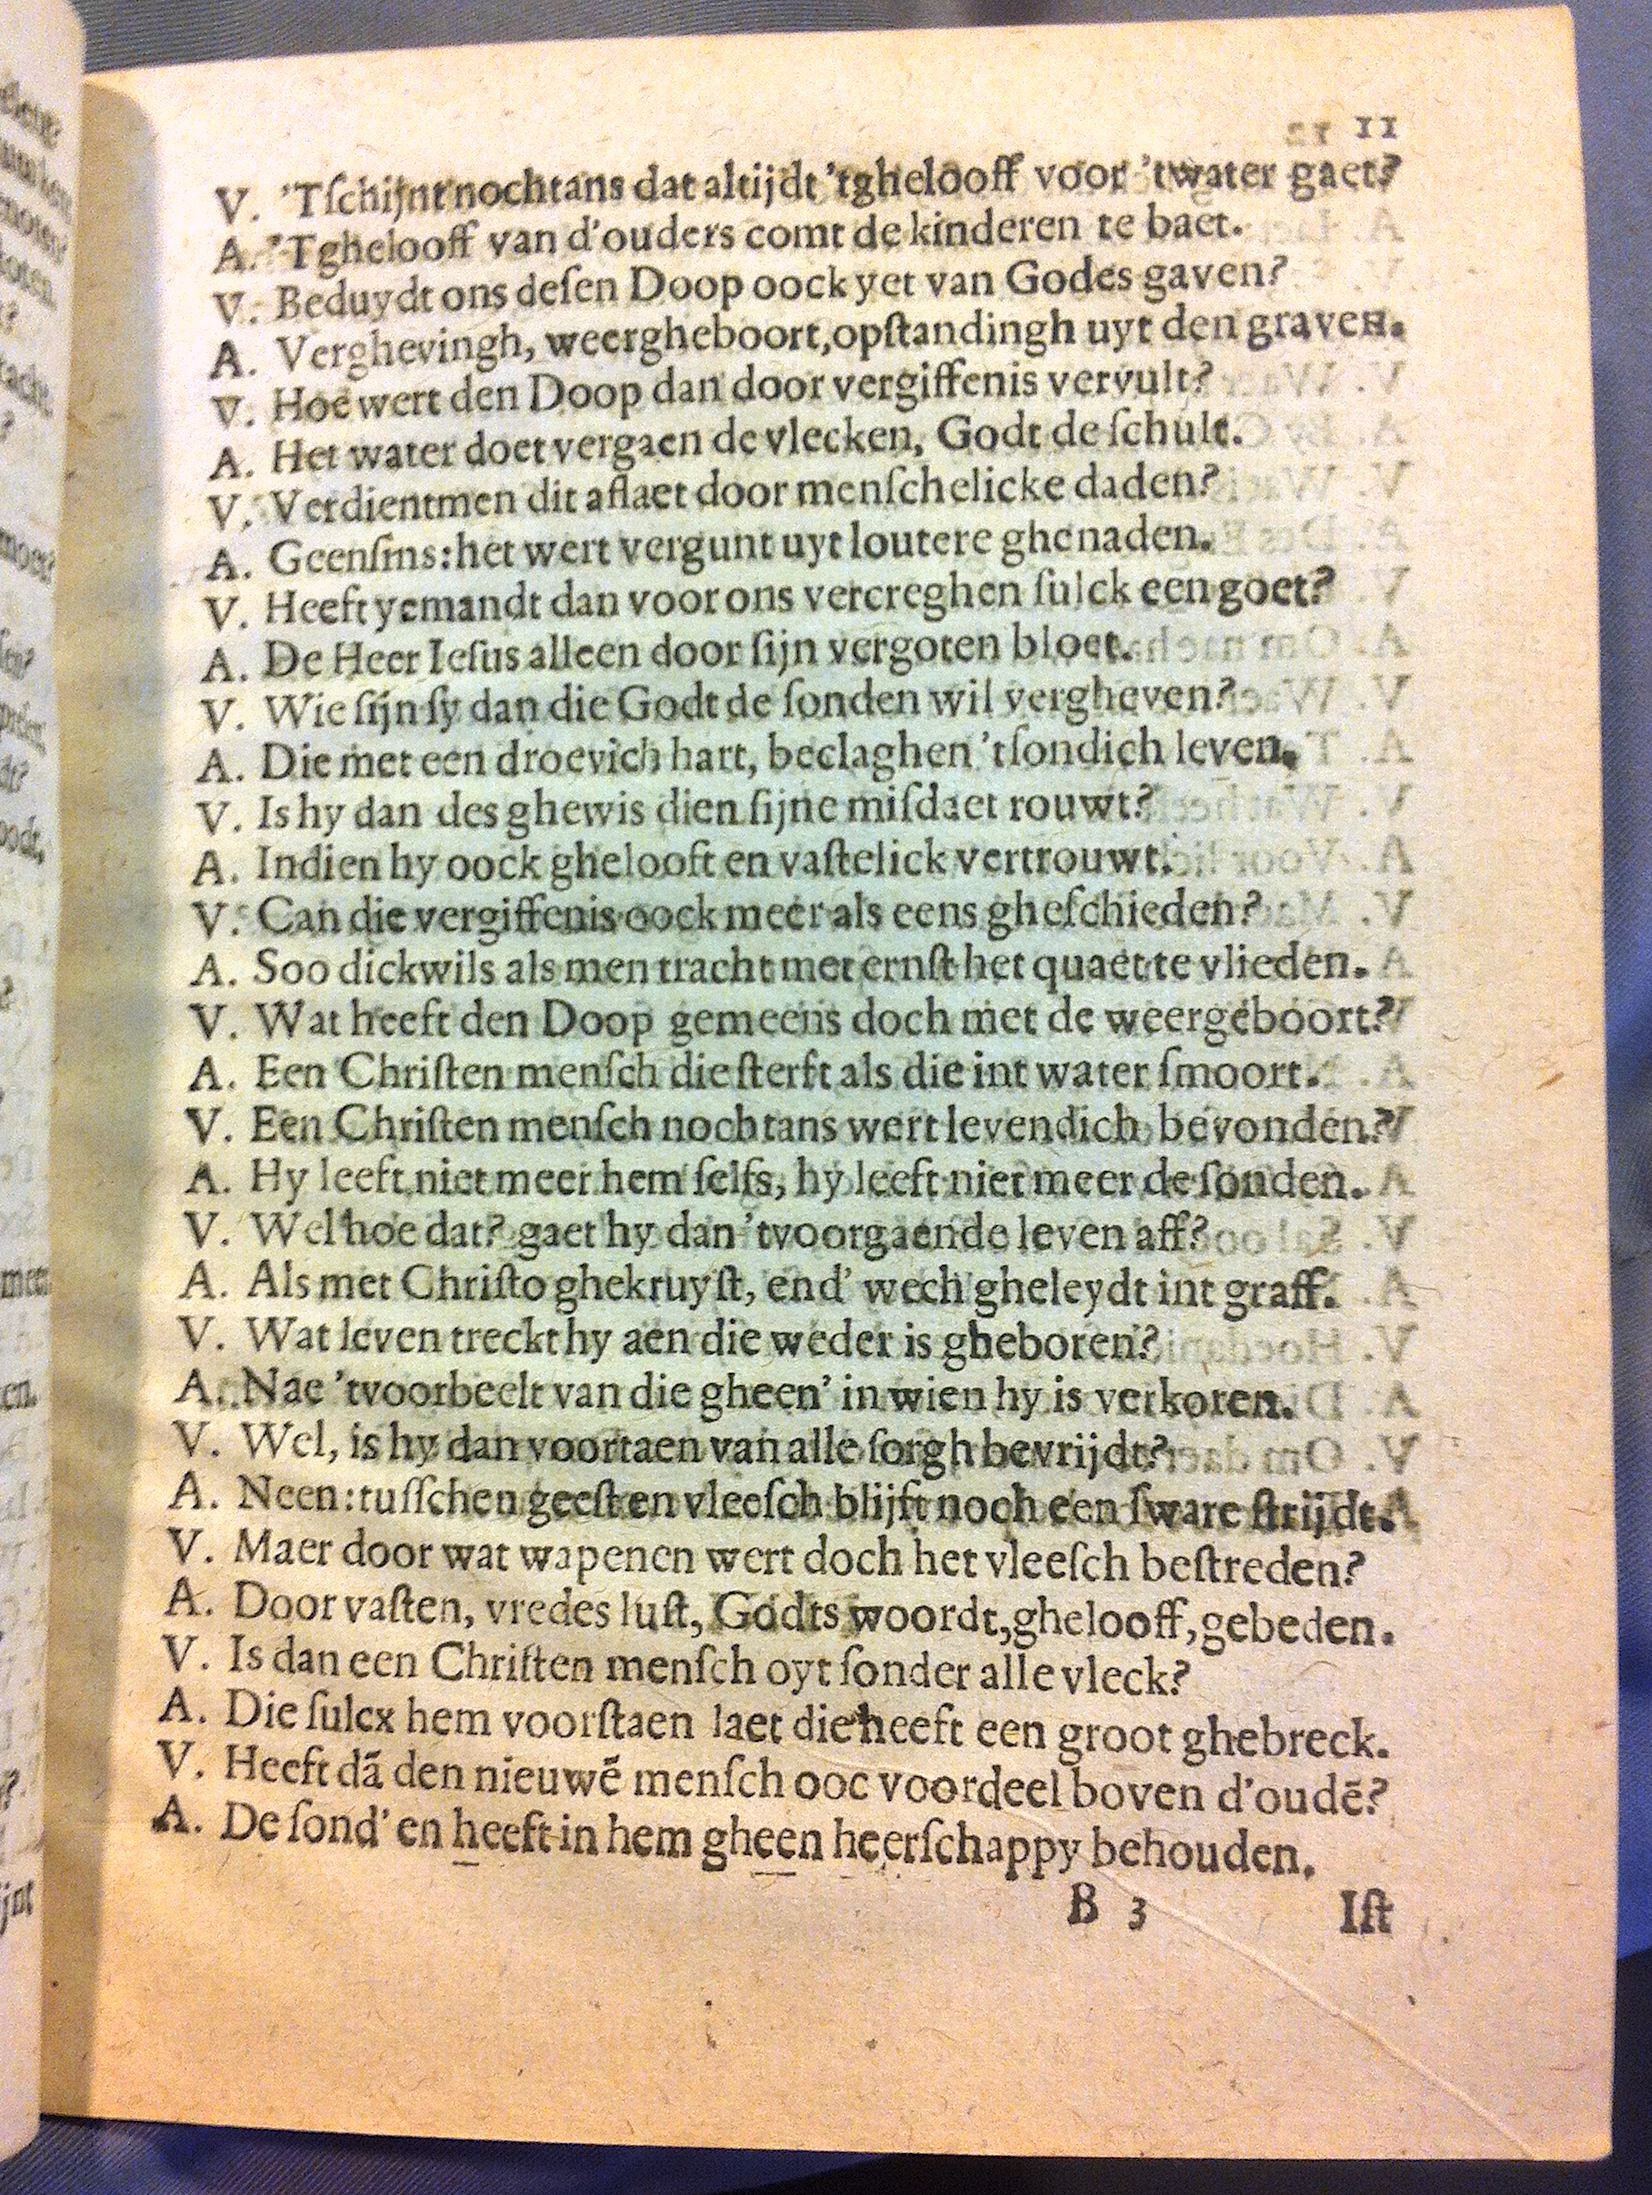 11
V. 'Tſchijnt nochtans dat altijdt 'tghelooff voor 'twater gaet?
A. 'Tghelooff van d'ouders comt de kinderen te baet.
V. Beduydt ons deſen Doop oock yet van Godes gaven?
A. Verghevingh, weergheboort, opſtandingh uyt den graven.
V. Hoe wert den Doop dan door vergiffenis vervult?
A. Het water doet vergaen de vlecken, Godt de ſchult.
V. Verdientmen dit aflaet door menſchelicke daden?
A. Geenſins: het wert vergunt uyt loutere ghenaden.
V. Heeft yemandt dan voor ons vercreghen ſulck een goet?
A. De Heer Ieſus alleen door ſijn vergoten bloet.
V. Wie ſijn ſy dan die Godt de ſonden wil vergheven?
A. Die met een droevich hart, beclaghen 'tſondich leven.
V. Is hy dan des ghewis dien ſijne miſdaet rouwt?
A. Indien hy oock ghelooft en vaſtelick vertrouwt.
V. Can die vergiffenis oock meer als eens gheſchieden?
A. Soo dickwils als men tracht met ernſt het quaet te vlieden.
V. Wat heeft den Doop gemeens doch met de weergeboort?
A. Een Chriſten menſch die ſterft als die int water ſmoort.
V. Een Chriſten menſch nochtans wert levendich bevonden?
A. Hy leeft niet meer hem ſelfs, hy leeft niet meer de ſonden.
V. Wel hoe dat? gaet hy dan 'tvoorgaende leven aff?
A. Als met Chriſto ghekruyſt, end' wech gheleydt int graff.
V. Wat leven treckt hy aen die weder is gheboren?
A. Nae 'tvoorbeelt van die gheen' in wien hy is verkoren.
V. Wel, is hy dan voortaen van alle ſorgh bevrijdt?
A. Neen: tuſſchen geeſt en vleeſch blijft noch een ſware ſtrijdt.
V. Maer door wat wapenen wert doch het vleeſch beſtreden?
A. Door vaſten, vredes luſt, Godts woordt, ghelooff, gebeden.
V. Is dan een Chriſten menſch oyt ſonder alle vleck?
A. Die ſulcx hem voorſtaen laet die heeft een groot ghebreck.
V. Heeft dā den nieuwē menſch ooc voordeel boven d'oudē?
A. De ſond' en heeft in hem gheen heerſchappy behouden.
B 3 Iſt